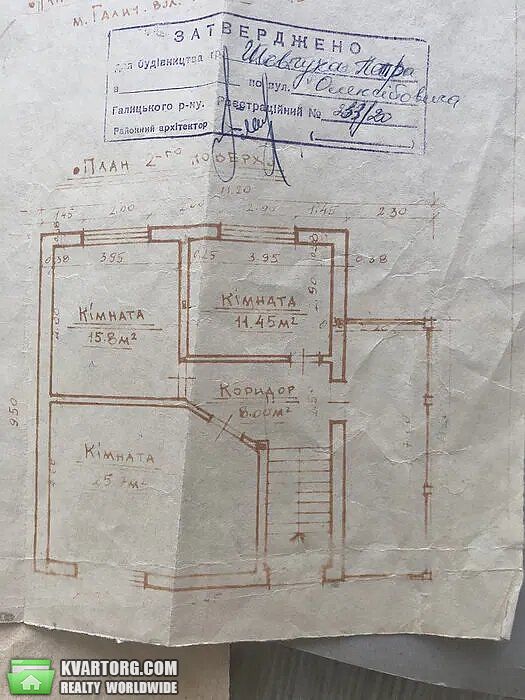 м. Галич. вул.
ЗАТВЕРДЖЕНО
для будівництва гр. Шевчука Петра
в по вул.
Галицького р-ну. Реєстраційний № 253/20
Районний архітектор ( )
ПЛАН 2-го ПОВЕРХ
11.20
1.45 2.00 2.00 1.45 2.30
0.38 3.95 0.25 3.95 0.38
КІМНАТА
11.45 м²
КІМНАТА
15.8 м²
КОРИДОР
8.00 м²
9.50
КІМНАТА
25.7 м²
KVARTORG.COM™
REALTY WORLDWIDE